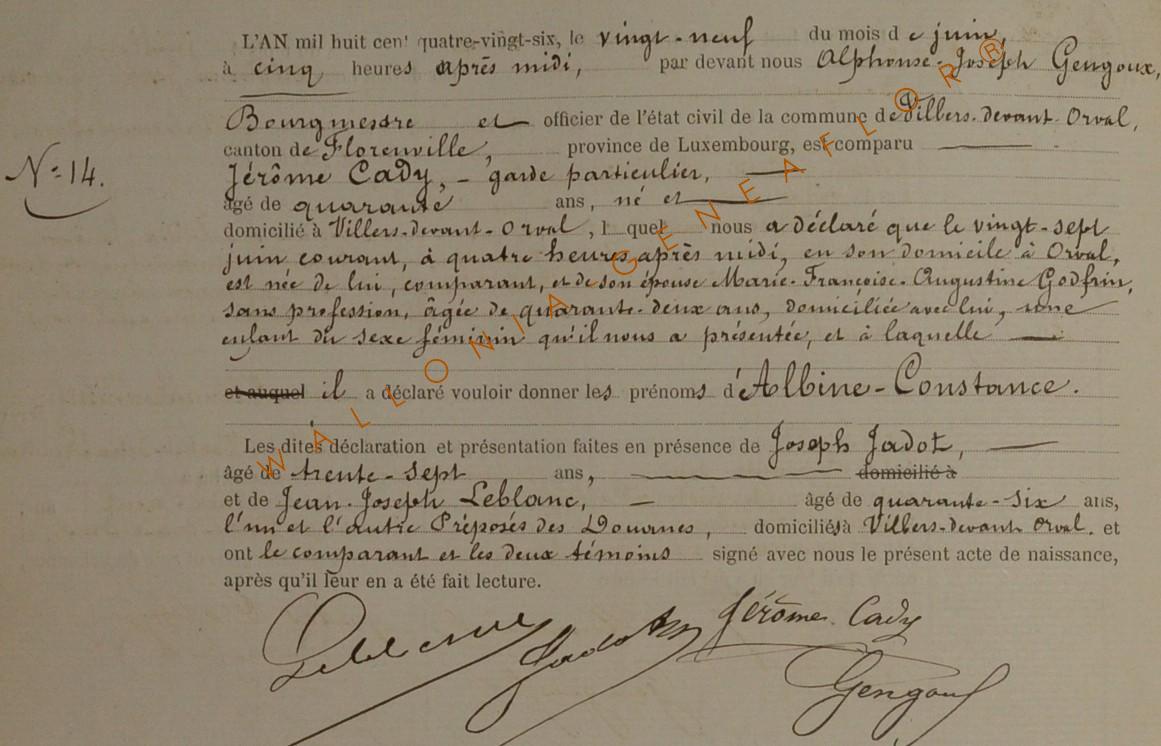 L'AN mil huit cent quatre-vingt-six, le vingt-neuf du mois de juin,
à cinq heures après midi, par devant nous Alphonse-Joseph Gengoux,
Bourgmestre et officier de l'état civil de la commune de Villers-devant-Orval,
canton de Florenville, province de Luxembourg, est comparu
N° 14.
Jérôme Cady, - garde particulier,
âgé de quarante ans, né et
domicilié à Villers-devant-Orval, lequel nous a déclaré que le vingt-sept
juin courant, à quatre heures après midi, en son domicile à Orval,
est née de lui, comparant, et de son épouse Marie-Françoise-Augustine Godfrin,
sans profession, âgée de quarante-deux ans, domiciliée avec lui, une
enfant du sexe féminin qu'il nous a présentée, et à laquelle
et auquel il a déclaré vouloir donner les prénoms d'Albine-Constance.
Les dites déclaration et présentation faites en présence de Joseph Jadot,
âgé de trente-sept ans, domicilié à
et de Jean-Joseph Leblanc, - âgé de quarante-six ans,
l'un et l'autre Préposés des Douanes, domiciliés à Villers-devant Orval. et
ont le comparant et les deux témoins signé avec nous le présent acte de naissance,
après qu'il leur en a été fait lecture.
Leblanc Jadot Jérôme Cady
Gengoux
WALLONIA GENEAFLOR®